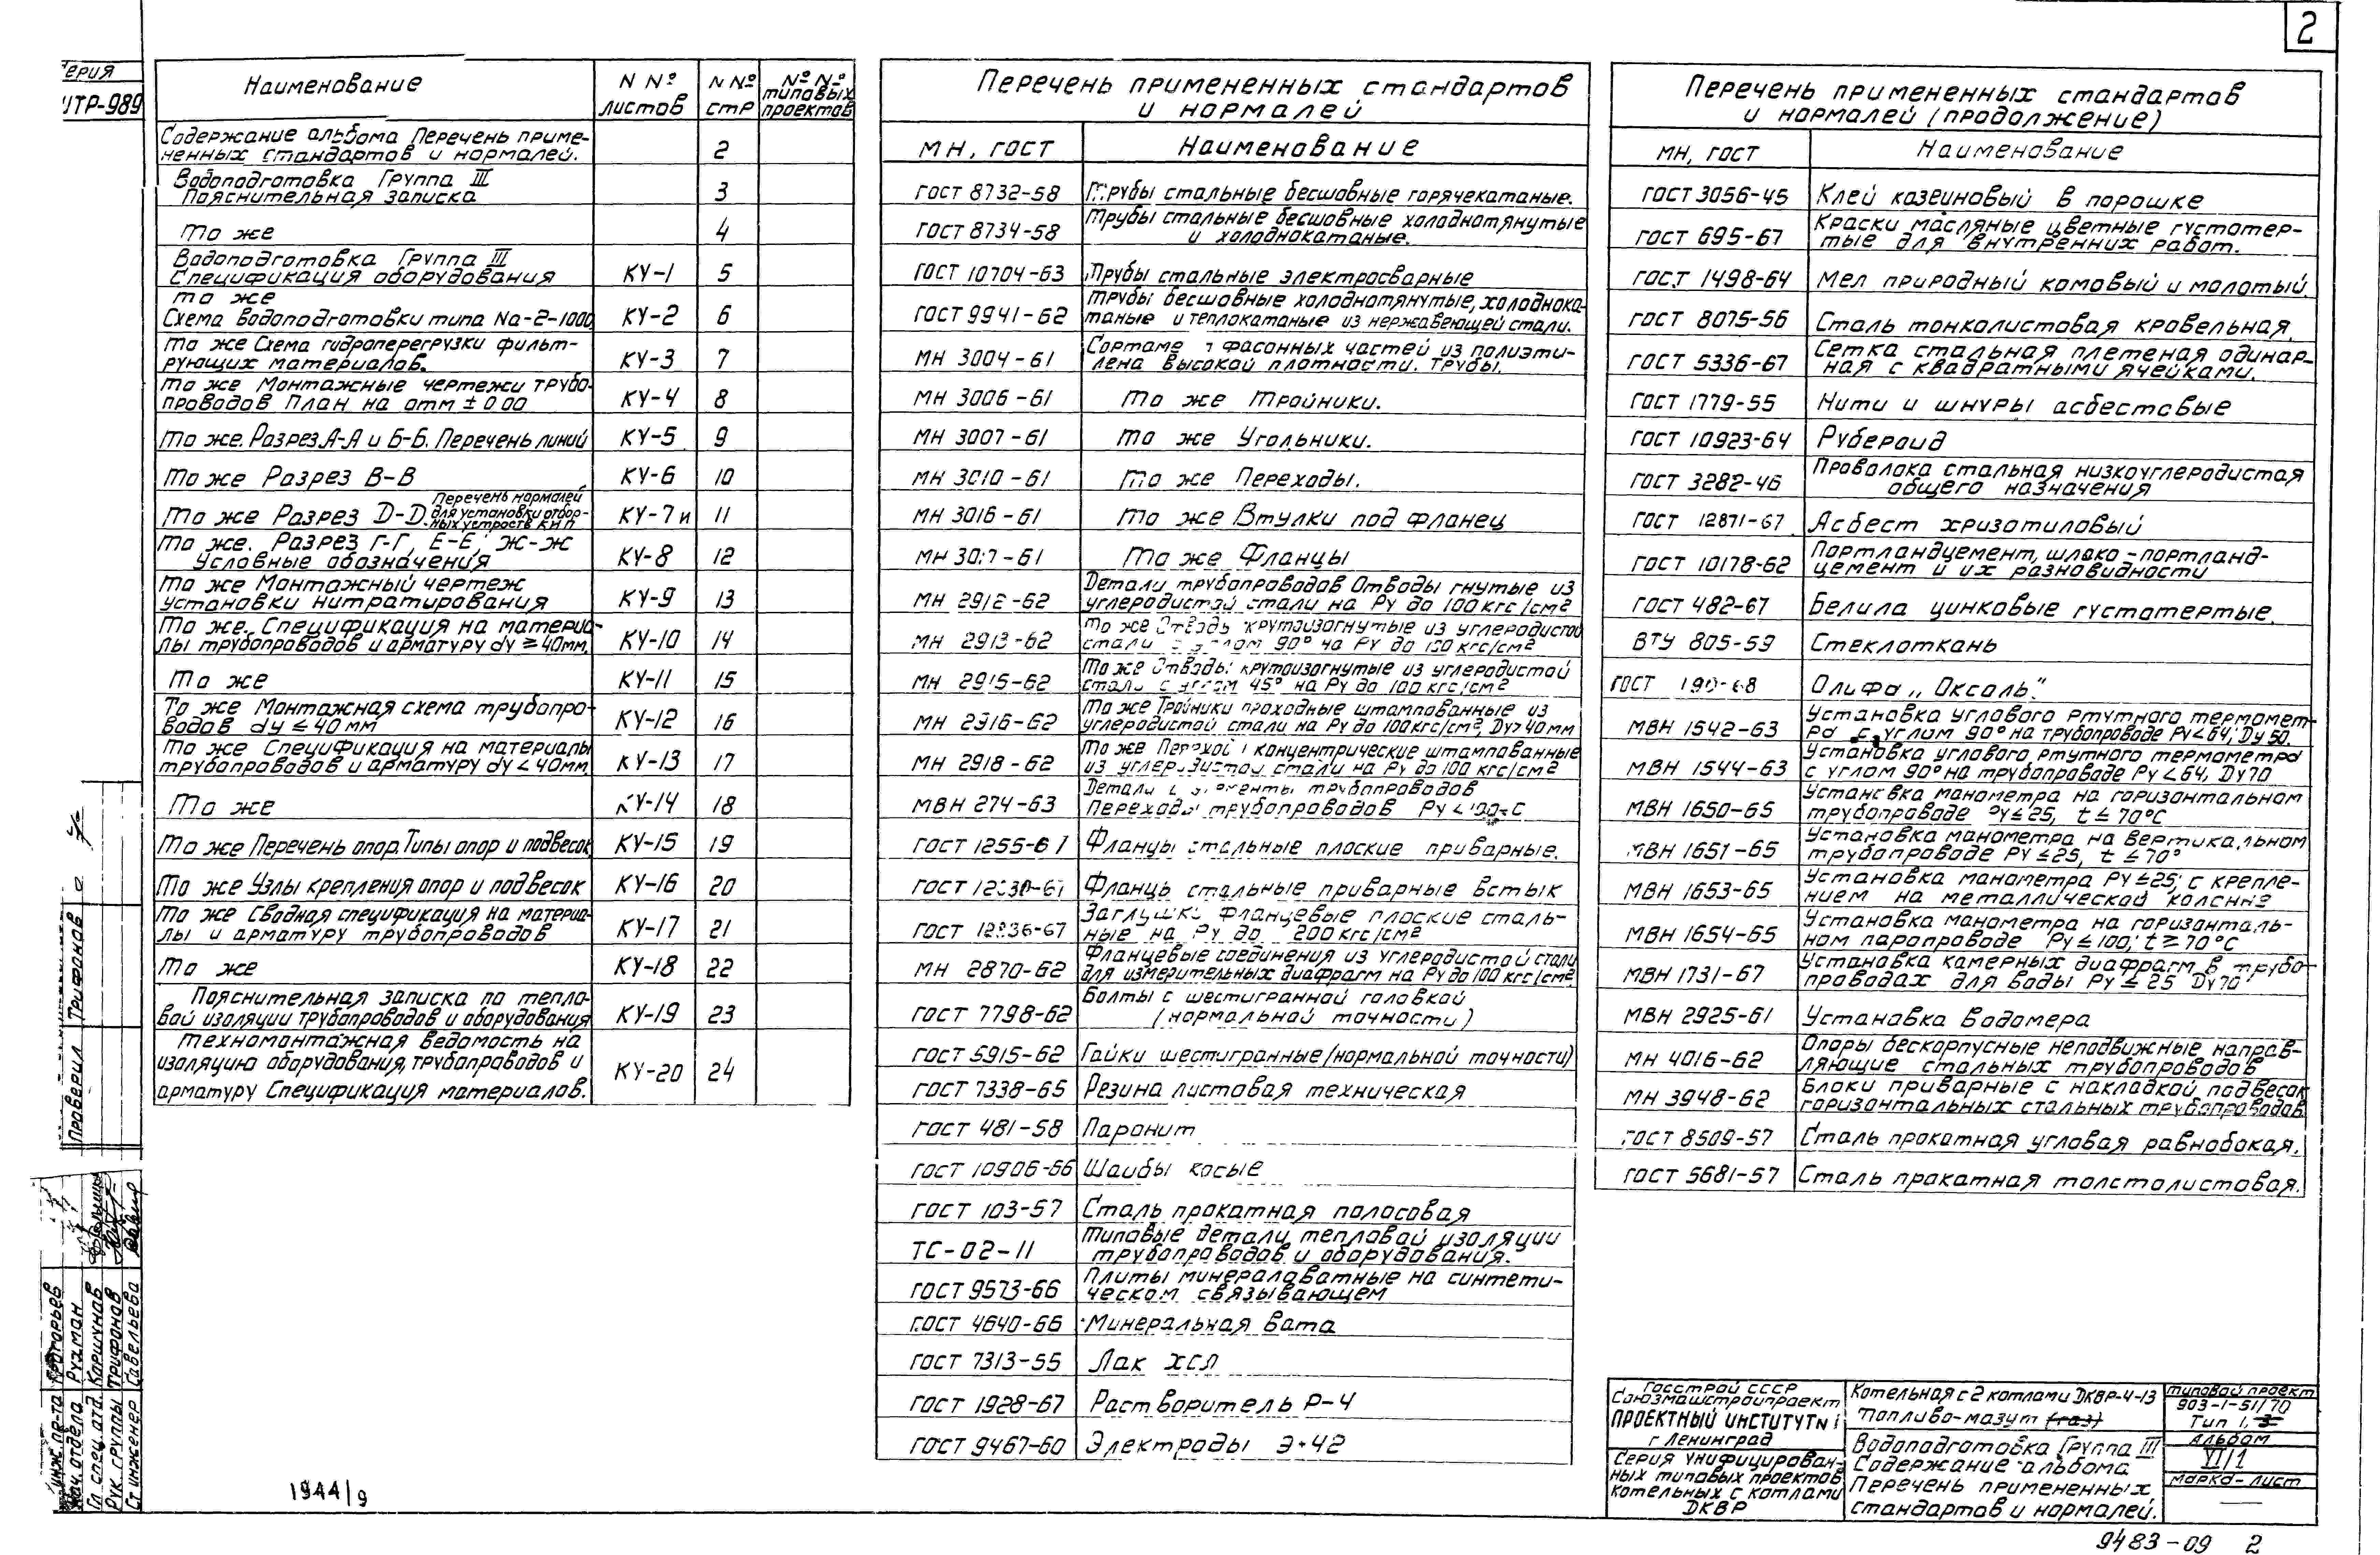 2
ИТР-989
Наименование
N Nº листов
N Nº стр
Nº Nº типовых проектов
Содержание альбома Перечень приме-
ненных стандартов и нормалей. 2
Водоподготовка Группа III
Пояснительная записка 3
То же 4
Водоподготовка Группа III
Спецификация оборудования КУ-1 5
То же
Схема водоподготовки типа Na-2-1000 КУ-2 6
То же Схема гидроперегрузки фильт-
рующих материалов. КУ-3 7
То же Монтажные чертежи трубо-
проводов План на отм ± 0 00 КУ-4 8
То же. Разрез А-А и Б-Б. Перечень линий КУ-5 9
То же Разрез В-В КУ-6 10
То же Разрез D-D. Перечень нормалей
для установки отбор-
ных устройств КИП КУ-7и 11
То же. Разрез Г-Г, Е-Е, Ж-Ж
Условные обозначения КУ-8 12
То же Монтажный чертеж
установки нитратирования КУ-9 13
То же. Спецификация на материа-
лы трубопроводов и арматуру dy ≥ 40мм. КУ-10 14
То же КУ-11 15
То же Монтажная схема трубопро-
водов dy ≤ 40 мм КУ-12 16
То же Спецификация на материалы
трубопроводов и арматуру dy < 40мм. КУ-13 17
То же КУ-14 18
То же Перечень опор. Типы опор и подвесок КУ-15 19
То же Узлы крепления опор и подвесок КУ-16 20
То же Сводная спецификация на материа-
лы и арматуру трубопроводов КУ-17 21
То же КУ-18 22
Пояснительная записка по тепло-
вой изоляции трубопроводов и оборудования КУ-19 23
Техномонтажная ведомость на
изоляцию оборудования, трубопроводов и
арматуру Спецификация материалов. КУ-20 24
Перечень примененных стандартов
и нормалей
МН, ГОСТ Наименование
ГОСТ 8732-58 Трубы стальные бесшовные горячекатаные.
ГОСТ 8734-58 Трубы стальные бесшовные холоднотянутые
и холоднокатаные.
ГОСТ 10704-63 Трубы стальные электросварные
ГОСТ 9941-62 Трубы бесшовные холоднотянутые, холоднока-
таные и теплокатаные из нержавеющей стали.
МН 3004-61 фасонных частей из полиэти-
лена высокой плотности. Трубы.
МН 3006-61 То же Тройники.
МН 3007-61 То же Угольники.
МН 3010-61 То же Переходы.
МН 3016-61 То же Втулки под фланец
МН 3017-61 То же Фланцы
МН 2912-62 Детали трубопроводов Отводы гнутые из
углеродистой стали на Ру до 100 кгс/см²
МН 2913-62 То же Отводы крутоизогнутые из углеродистой
стали с углом 90° на Ру до 100 кгс/см²
МН 2915-62 То же Отводы крутоизогнутые из углеродистой
стали с углом 45° на Ру до 100 кгс/см²
МН 2916-62 То же Тройники проходные штампованные из
углеродистой стали на Ру до 100кгс/см², Dy>40мм
МН 2918-62 То же Переходы концентрические штампованные
из углеродистой стали на Ру до 100 кгс/см²
МВН 274-63 Детали и элементы трубопроводов
Переходы трубопроводов Ру <
ГОСТ 1255-67 Фланцы стальные плоские приварные.
ГОСТ 12830-67 Фланцы стальные приварные встык
ГОСТ 12836-67 Заглушки фланцевые плоские сталь-
ные на Ру до 200 кгс/см²
МН 2870-62 Фланцевые соединения из углеродистой стали
для измерительных диафрагм на Ру до 100 кгс/см²
ГОСТ 7798-62 Болты с шестигранной головкой
(нормальной точности)
ГОСТ 5915-62 Гайки шестигранные (нормальной точности)
ГОСТ 7338-65 Резина листовая техническая
ГОСТ 481-58 Паронит
ГОСТ 10906-66 Шайбы косые
ГОСТ 103-57 Сталь прокатная полосовая
ТС-02-11 Типовые детали тепловой изоляции
трубопроводов и оборудования.
ГОСТ 9573-66 Плиты минераловатные на синтети-
ческом связывающем
ГОСТ 4640-66 Минеральная вата
ГОСТ 7313-55 Лак ХСЛ
ГОСТ 1928-67 Растворитель Р-4
ГОСТ 9467-60 Электроды Э-42
Перечень примененных стандартов
и нормалей (продолжение)
МН, ГОСТ Наименование
ГОСТ 3056-45 Клей казеиновый в порошке
ГОСТ 695-67 Краски масляные цветные густотер-
тые для внутренних работ.
ГОСТ 1498-64 Мел природный комовый и молотый.
ГОСТ 8075-56 Сталь тонколистовая кровельная.
ГОСТ 5336-67 Сетка стальная плетеная одинар-
ная с квадратными ячейками.
ГОСТ 1779-55 Нити и шнуры асбестовые
ГОСТ 10923-64 Рубероид
ГОСТ 3282-46 Проволока стальная низкоуглеродистая
общего назначения
ГОСТ 12871-67 Асбест хризотиловый
ГОСТ 10178-62 Портландцемент, шлако-портланд-
цемент и их разновидности
ГОСТ 482-67 Белила цинковые густотертые.
ВТУ 805-59 Стеклоткань
ГОСТ 190-68 Олифа „Оксоль".
МВН 1542-63 Установка углового ртутного термомет-
ра с углом 90° на трубопроводе Ру<64; Dy 50.
МВН 1544-63 Установка углового ртутного термометра
с углом 90° на трубопроводе Ру<64, Dy70
МВН 1650-65 Установка манометра на горизонтальном
трубопроводе Ру≤25, t ≤ 70°С
МВН 1651-65 Установка манометра на вертикальном
трубопроводе Ру ≤25, t ≤ 70°
МВН 1653-65 Установка манометра Ру≤25; с крепле-
нием на металлической колонне
МВН 1654-65 Установка манометра на горизонталь-
ном паропроводе Ру≤100; t ≥ 70°С
МВН 1731-67 Установка камерных диафрагм в трубо-
проводах для воды Ру ≤ 25 Dy70
МВН 2925-61 Установка водомера
МН 4016-62 Опоры бескорпусные неподвижные направ-
ляющие стальных трубопроводов
МН 3948-62 Блоки приварные с накладкой подвесок
горизонтальных стальных трубопроводов
ГОСТ 8509-57 Сталь прокатная угловая равнобокая.
ГОСТ 5681-57 Сталь прокатная толстолистовая.
Проверил Трифонов
инж. пр-та Григорьев
Нач. отдела Рухман
Гл спец. отд. Коршунов
Рук группы Трифонов
Ст инженер Савельева
1944/9
Госстрой СССР
Союзмашстройпроект
ПРОЕКТНЫЙ ИНСТИТУТ N 1
г Ленинград
Серия унифицирован-
ных типовых проектов
котельных с котлами
ДКВР
Котельная с 2 котлами ДКВР-4-13
Топливо-мазут (газ)
Водоподготовка Группа III
Содержание альбома
Перечень примененных
стандартов и нормалей.
Типовой проект
903-1-51/70
Тип 1, 3
Альбом
VI/1
Марка-лист
9483-09 2